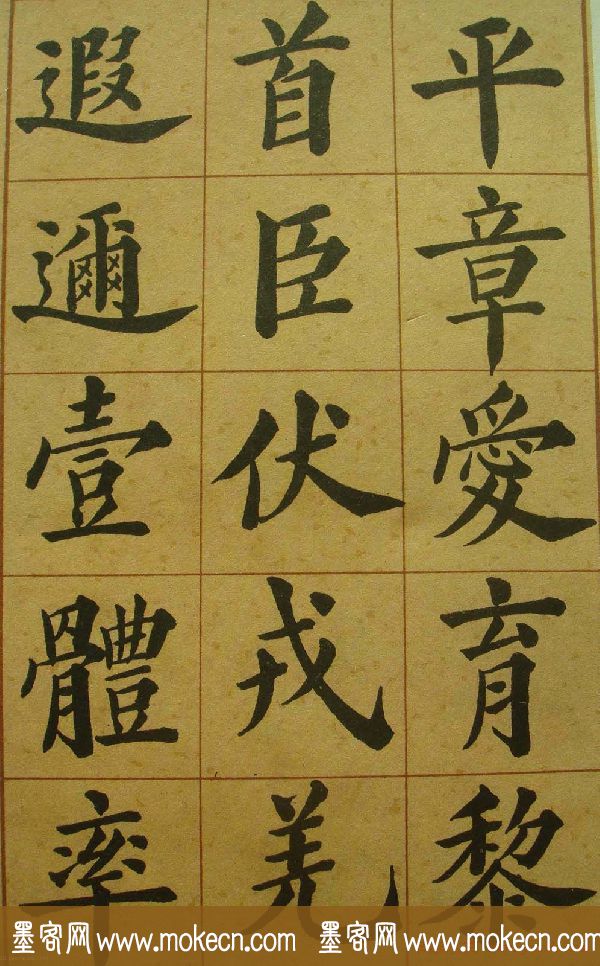 平章愛育黎
首臣伏戎羌
遐邇壹體率
墨客网 www.mokecn.com 墨客网 www.mokecn.com